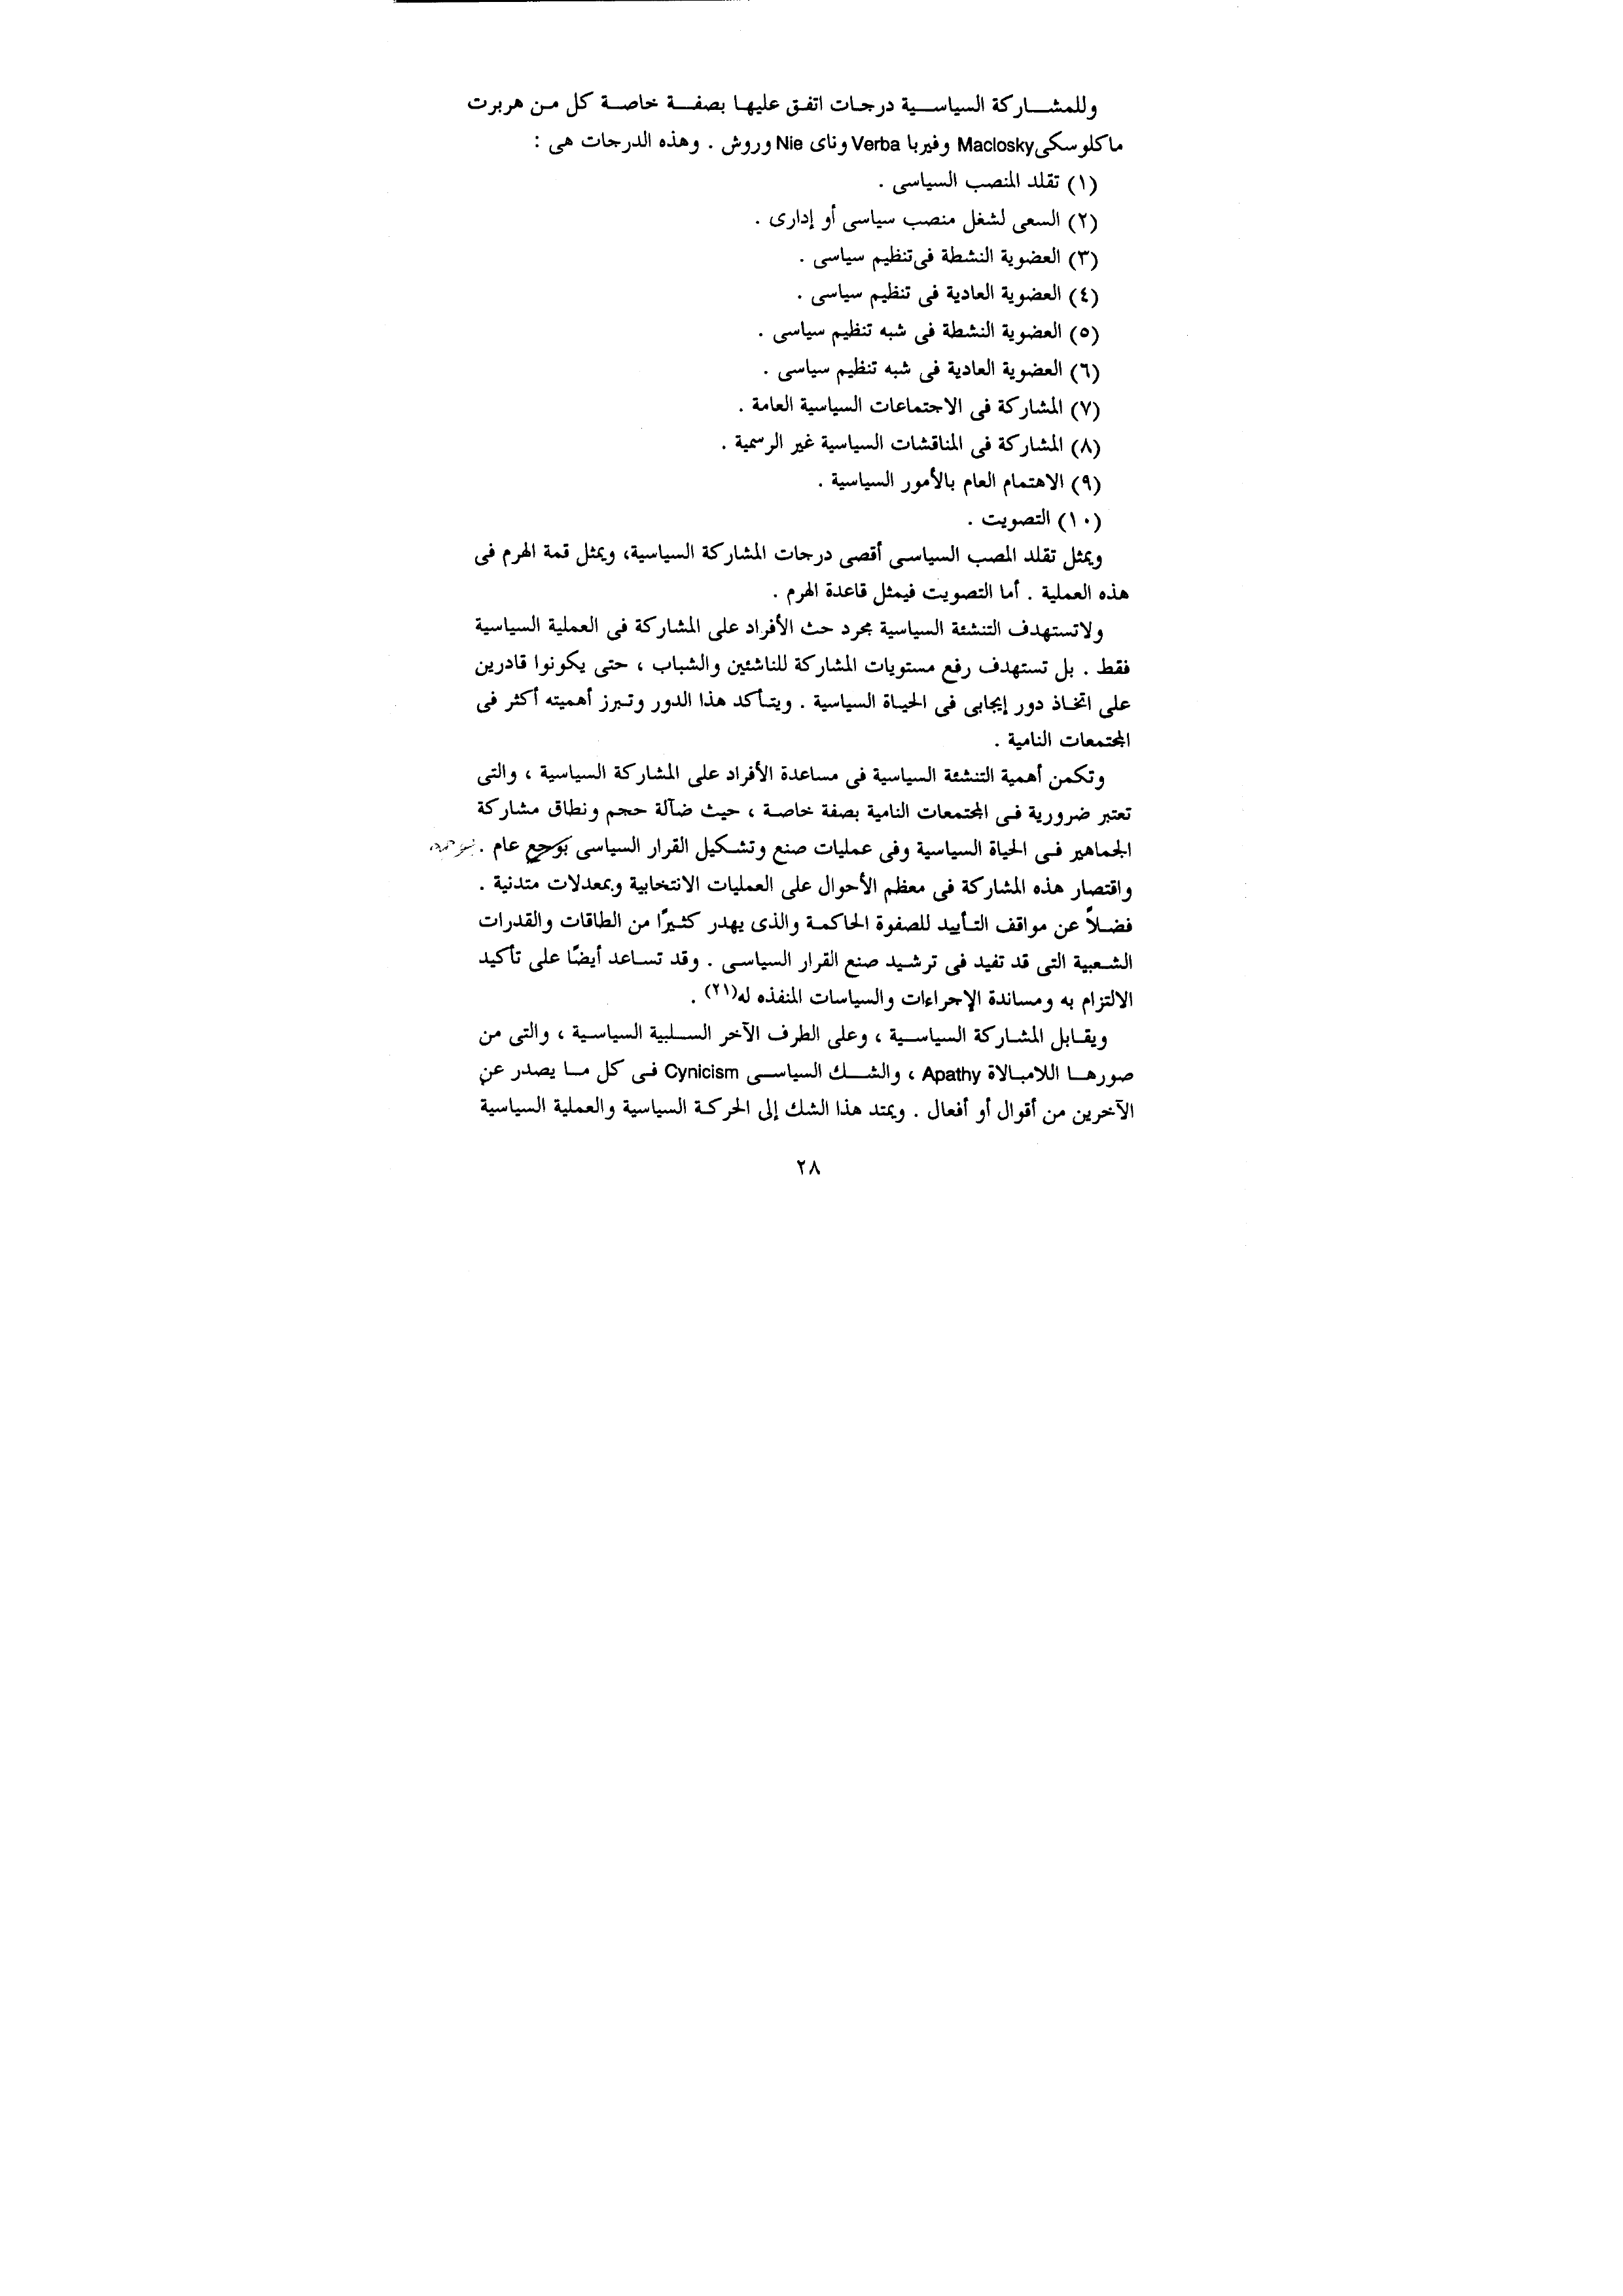 وللمشاركة السياسية درجات اتفق عليها بصفة خاصة كل من هربرت
ماكلوسكى Maclosky وفيربا Verba وناى Nie وروش . وهذه الدرجات هى :
(١) تقلد المنصب السياسى .
(٢) السعى لشغل منصب سياسى أو إدارى .
(٣) العضوية النشطة فى تنظيم سياسى .
(٤) العضوية العادية فى تنظيم سياسى .
(٥) العضوية النشطة فى شبه تنظيم سياسى .
(٦) العضوية العادية فى شبه تنظيم سياسى .
(٧) المشاركة فى الاجتماعات السياسية العامة .
(٨) المشاركة فى المناقشات السياسية غير الرسمية .
(٩) الاهتمام العام بالأمور السياسية .
(١٠) التصويت .
ويمثل تقلد المصب السياسى أقصى درجات المشاركة السياسية، ويمثل قمة الهرم فى
هذه العملية . أما التصويت فيمثل قاعدة الهرم .
ولاتستهدف التنشئة السياسية مجرد حث الأفراد على المشاركة فى العملية السياسية
فقط . بل تستهدف رفع مستويات المشاركة للناشئين والشباب ، حتى يكونوا قادرين
على اتخاذ دور إيجابى فى الحياة السياسية . ويتأكد هذا الدور وتبرز أهميته أكثر فى
المجتمعات النامية .
وتكمن أهمية التنشئة السياسية فى مساعدة الأفراد على المشاركة السياسية ، والتى
تعتبر ضرورية فى المجتمعات النامية بصفة خاصة ، حيث ضآلة حجم ونطاق مشاركة
الجماهير فى الحياة السياسية وفى عمليات صنع وتشكيل القرار السياسى بوجع عام . بوجه
واقتصار هذه المشاركة فى معظم الأحوال على العمليات الانتخابية وبمعدلات متدنية .
فضلاً عن مواقف التأييد للصفوة الحاكمة والذى يهدر كثيرًا من الطاقات والقدرات
الشعبية التى قد تفيد فى ترشيد صنع القرار السياسى . وقد تساعد أيضًا على تأكيد
الالتزام به ومساندة الإجراءات والسياسات المنفذه له(٢١) .
ويقابل المشاركة السياسية ، وعلى الطرف الآخر السلبية السياسية ، والتى من
صورها اللامبالاة Apathy ، والشك السياسى Cynicism فى كل ما يصدر عن
الآخرين من أقوال أو أفعال . ويمتد هذا الشك إلى الحركة السياسية والعملية السياسية
٢٨